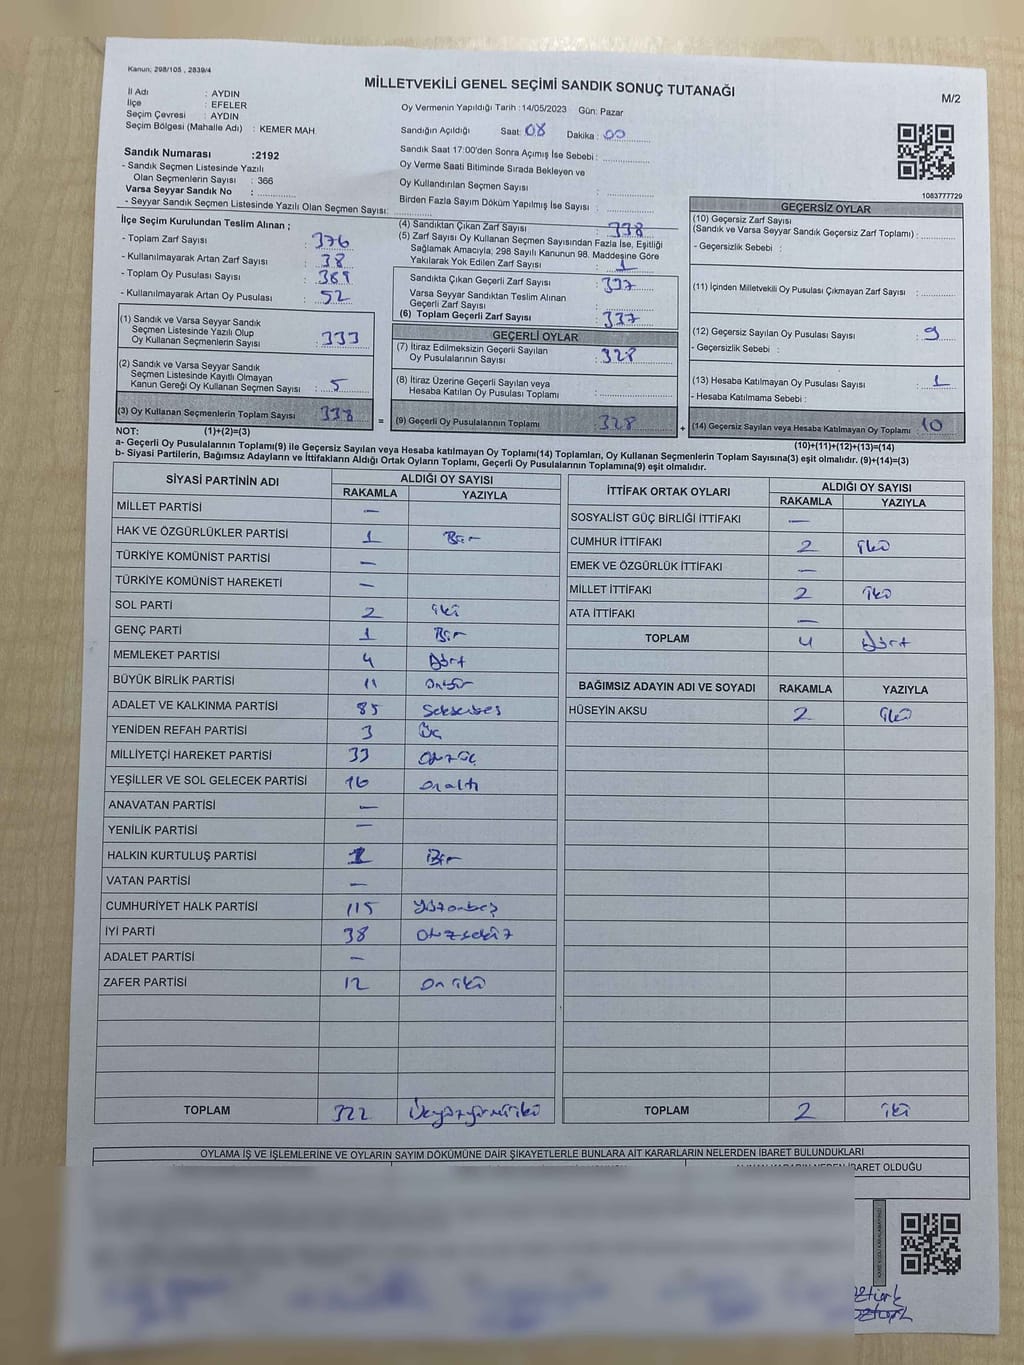 Kanun; 298/105 , 2839/4
MİLLETVEKİLİ GENEL SEÇİMİ SANDIK SONUÇ TUTANAĞI
M/2
İl Adı : AYDIN
İlçe : EFELER
Seçim Çevresi : AYDIN
Seçim Bölgesi (Mahalle Adı) : KEMER MAH
Oy Vermenin Yapıldığı Tarih :14/05/2023 Gün: Pazar
Sandığın Açıldığı Saat: 08 Dakika : 00
Sandık Saat 17:00'den Sonra Açımış İse Sebebi :
Oy Verme Saati Bitiminde Sırada Bekleyen ve
Oy Kullandırılan Seçmen Sayısı :
Birden Fazla Sayım Döküm Yapılmış İse Sayısı :
1083777729
Sandık Numarası :2192
- Sandık Seçmen Listesinde Yazılı
Olan Seçmenlerin Sayısı : 366
Varsa Seyyar Sandık No :
- Seyyar Sandık Seçmen Listesinde Yazılı Olan Seçmen Sayısı:
İlçe Seçim Kurulundan Teslim Alınan ;
- Toplam Zarf Sayısı : 376
- Kullanılmayarak Artan Zarf Sayısı : 38
- Toplam Oy Pusulası Sayısı : 389
- Kullanılmayarak Artan Oy Pusulası : 52
(1) Sandık ve Varsa Seyyar Sandık
Seçmen Listesinde Yazılı Olup
Oy Kullanan Seçmenlerin Sayısı : 333
(2) Sandık ve Varsa Seyyar Sandık
Seçmen Listesinde Kayıtlı Olmayan
Kanun Gereği Oy Kullanan Seçmen Sayısı : 5
(3) Oy Kullanan Seçmenlerin Toplam Sayısı 338
(4) Sandıktan Çıkan Zarf Sayısı : 338
(5) Zarf Sayısı Oy Kullanan Seçmen Sayısından Fazla İse, Eşitliği
Sağlamak Amacıyla, 298 Sayılı Kanunun 98. Maddesine Göre
Yakılarak Yok Edilen Zarf Sayısı : 1
Sandıkta Çıkan Geçerli Zarf Sayısı : 337
Varsa Seyyar Sandıktan Teslim Alınan
Geçerli Zarf Sayısı :
(6) Toplam Geçerli Zarf Sayısı : 337
GEÇERLİ OYLAR
(7) İtiraz Edilmeksizin Geçerli Sayılan
Oy Pusulalarının Sayısı : 328
(8) İtiraz Üzerine Geçerli Sayılan veya
Hesaba Katılan Oy Pusulası Toplamı :
= (9) Geçerli Oy Pusulalarının Toplamı : 328
GEÇERSİZ OYLAR
(10) Geçersiz Zarf Sayısı
(Sandık ve Varsa Seyyar Sandık Geçersiz Zarf Toplamı) :
- Geçersizlik Sebebi :
(11) İçinden Milletvekili Oy Pusulası Çıkmayan Zarf Sayısı :
(12) Geçersiz Sayılan Oy Pusulası Sayısı : 9
- Geçersizlik Sebebi :
(13) Hesaba Katılmayan Oy Pusulası Sayısı : 1
- Hesaba Katılmama Sebebi :
+ (14) Geçersiz Sayılan veya Hesaba Katılmayan Oy Toplamı : 10
NOT: (1)+(2)=(3)
(10)+(11)+(12)+(13)=(14)
a- Geçerli Oy Pusulalarının Toplamı(9) ile Geçersiz Sayılan veya Hesaba katılmayan Oy Toplamı(14) Toplamları, Oy Kullanan Seçmenlerin Toplam Sayısına(3) eşit olmalıdır. (9)+(14)=(3)
b- Siyasi Partilerin, Bağımsız Adayların ve İttifakların Aldığı Ortak Oyların Toplamı, Geçerli Oy Pusulalarının Toplamına(9) eşit olmalıdır.
SİYASİ PARTİNİN ADI ALDIĞI OY SAYISI
RAKAMLA YAZIYLA
MİLLET PARTİSİ —
HAK VE ÖZGÜRLÜKLER PARTİSİ 1 Bir
TÜRKİYE KOMÜNİST PARTİSİ —
TÜRKİYE KOMÜNİST HAREKETİ —
SOL PARTİ 2 iki
GENÇ PARTİ 1 Bir
MEMLEKET PARTİSİ 4 Dört
BÜYÜK BİRLİK PARTİSİ 11 Onbir
ADALET VE KALKINMA PARTİSİ 85 Seksenbeş
YENİDEN REFAH PARTİSİ 3 Üç
MİLLİYETÇİ HAREKET PARTİSİ 33 Otuzüç
YEŞİLLER VE SOL GELECEK PARTİSİ 16 Onaltı
ANAVATAN PARTİSİ —
YENİLİK PARTİSİ —
HALKIN KURTULUŞ PARTİSİ 1 Bir
VATAN PARTİSİ —
CUMHURİYET HALK PARTİSİ 115 Yüzonbeş
İYİ PARTİ 38 Otuzsekiz
ADALET PARTİSİ —
ZAFER PARTİSİ 12 On iki
TOPLAM 322 Üçyüzyirmiiki
İTTİFAK ORTAK OYLARI ALDIĞI OY SAYISI
RAKAMLA YAZIYLA
SOSYALİST GÜÇ BİRLİĞİ İTTİFAKI —
CUMHUR İTTİFAKI 2 iki
EMEK VE ÖZGÜRLÜK İTTİFAKI —
MİLLET İTTİFAKI 2 iki
ATA İTTİFAKI —
TOPLAM 4 Dört
BAĞIMSIZ ADAYIN ADI VE SOYADI RAKAMLA YAZIYLA
HÜSEYİN AKSU 2 iki
TOPLAM 2 iki
OYLAMA İŞ VE İŞLEMLERİNE VE OYLARIN SAYIM DÖKÜMÜNE DAİR ŞİKAYETLERLE BUNLARA AİT KARARLARIN NELERDEN İBARET BULUNDUKLARI
İBARET OLDUĞU